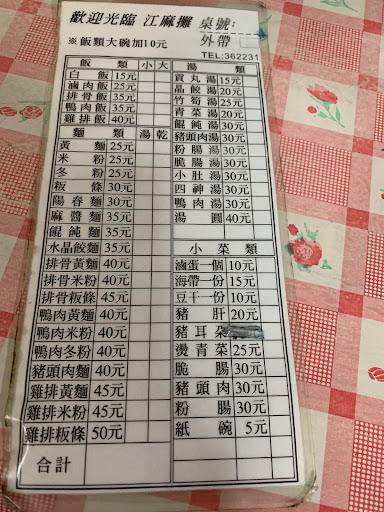 歡迎光臨 江麻攤 桌號:
※飯類大碗加10元 外帶
TEL:362231
飯類 小 大
白飯 15元
滷肉飯 25元
排骨飯 35元
鴨肉飯 35元
雞排飯 40元
麵類 湯 乾
黃麵 25元
米粉 25元
冬粉 25元
粄條 30元
陽春麵 30元
麻醬麵 35元
餛飩麵 35元
水晶餃麵 35元
排骨黃麵 40元
排骨米粉 40元
排骨粄條 45元
鴨肉黃麵 40元
鴨肉米粉 40元
鴨肉冬粉 40元
豬頭肉麵 40元
雞排黃麵 45元
雞排米粉 45元
雞排粄條 50元
合計
湯類
貢丸湯 15元
晶餃湯 20元
竹筍湯 25元
青菜湯 20元
餛飩湯 30元
豬頭肉湯 30元
粉腸湯 30元
脆腸湯 30元
小肚湯 30元
四神湯 30元
鴨肉湯 30元
湯圓 40元
小菜類
滷蛋一個 10元
海帶一份 15元
豆干一份 10元
豬肝 20元
豬耳朵
燙青菜 25元
脆腸 30元
豬頭肉 30元
粉腸 30元
紙碗 5元